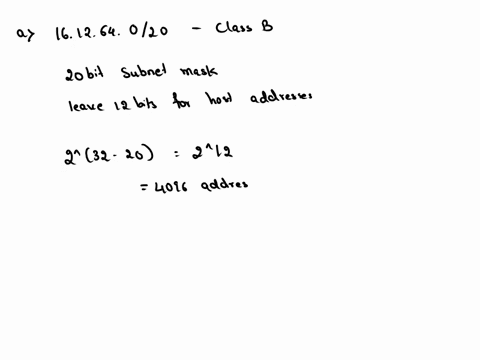 a) 16.12.64.0/20 - Class B
20 bit Subnet mask
leave 12 bits for host addresses
2^(32-20) = 2^12
= 4096 addres